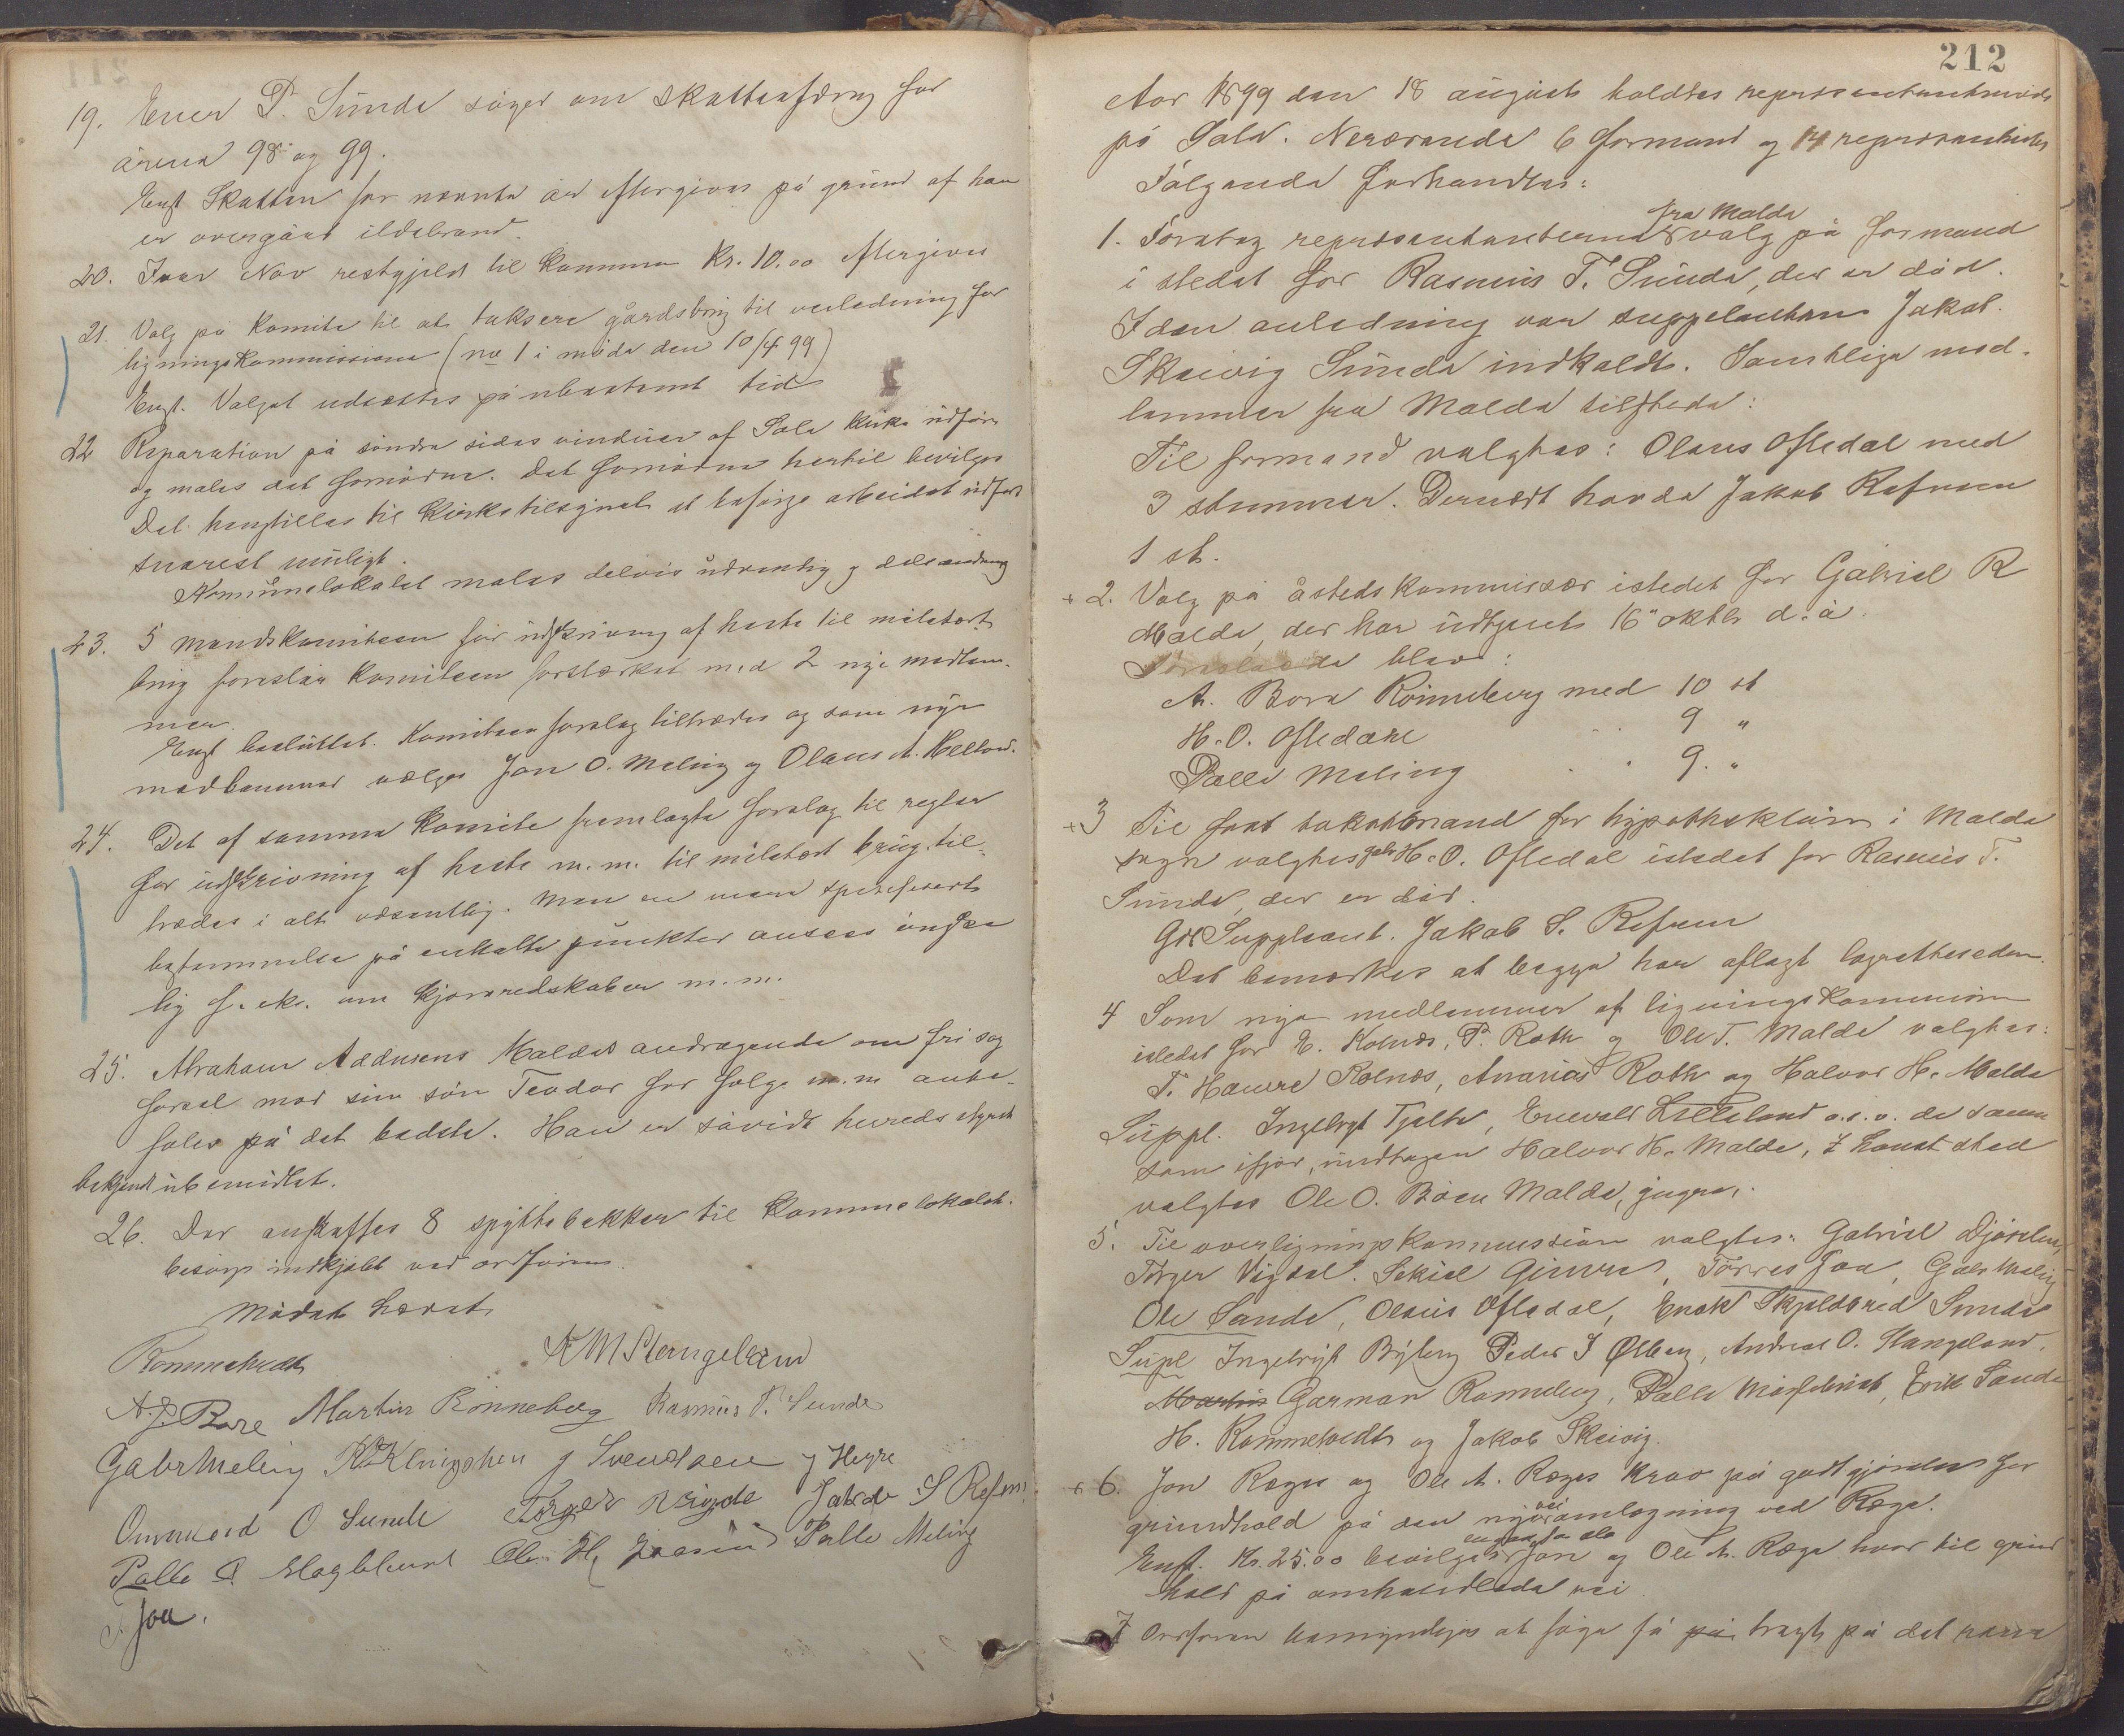 19. Ener P. Sunde søger om skatteafdrag for
årene 98 og 99.
Enst Skatten for nevnte år eftergives på grund af han
er overgået ildebrand.
20. Ivar Nav restgjeld til kommunen Kr. 10.00 eftergives
21. Valg på komite til at taksere gårdsbrug til veiledning for
ligningskommissionen (no 1 i møde den 10/4 99)
Enst. Valget udsættes på ubestemt tid
22 Reparation på søndre sides vinduer af Sola kirke udføres
og males det fornødne. Det fornødne hertil bevilges
Det henstilles til kirketilsynet at besørge arbeidet udført
snarest muligt.
Kommunelokalet males delvis udvendig og dels indvendig
23. 5 mandskomiteen for udskrivning af heste til militært
brug foreslår komiteen forstærket med 2 nye medlem-
mer.
Enst besluttet. Komiteens forslag tiltrædes og som nye
medlemmer vælges Jon O. Meling og Olaus A. Helland.
24. Det af samme komite fremlagte forslag til regler
for udskrivning af heste m.m. til militært brug til-
trædes i alt væsentlig. Men en mere spesifisert
bestemmelse på enkelte punkter ansees ønske
lig f. eks. om kjøreredskaber m.m.
25. Abraham Addnsens Maldes andragende om fri sag
førsel mod sin søn Teodor for følge m.m anbe-
fales på det bedste. Han er såvidt herreds styret
bekjendt ubemidlet.
26. Der anskaffes 8 spyttebekker til kommunelokalet.
besørges indkjøbt ved ordføreren.
Mødet hævet
Rommetvedt A M Stangeland
A. J. Bore Martin Rønneberg Rasmus P. Sunde
Gabr Meling J Svendsen J Hegre
O Sunde Torger Vigdel Jakob S Refnes
Palle Ole H. Palle Meling
T. Joa.
212
Aar 1899 den 18 august holdtes representantmøde
på Sola. Nerværende 6 formænd og 14 representanter
Følgende forhandles:
fra Malde
1. Foretog representanterne valg på formand
i stedet for Rasmus T. Sunde, der er død.
I den anledning var suppelanten Jakob
Skeivig Sunde indkaldt. Samtlige med-
lemmer fra Malde tilstede:
Til formand valgtes: Olaus Oftedal med
3 stemmer. Dernæst havde Jakob Refnem
1 st.
+ 2. Valg på åstedskommissær istedet for Gabriel R
Malde, der har udtjent 16 oktb d. å.
Foreslåede blev:
A. Bore Rønneberg med 10 st
H. O. Oftedal " " 9 "
Palle Meling " " 9. "
+ 3 Til fast takstmand for hypothekslån i Malde
sogn valgtes H. O. Oftedal istedet for Rasmus T.
Sunde, der er død.
Suppleant. Jakob S. Refnem
Det bemærkes at begge har aflagt lagretteseden.
4 Som nye medlemmer af ligningskommissionen
istedet for E. Kolnes, P. Roth og Ole T. Malde valgtes:
T. Hauvre Kolnes, Ananias Roth og Halvor H. Malde
Suppl. Ingebrigt Tjelta, Enevald Lilleland o.s.v. de samme
som ifjor, undtagen Halvor H. Malde, i hans sted
valgtes Ole O. Bøen Malde, yngre.
5. Til overligningskommission valgtes: Gabriel Djøseland,
Torger Vigdel. Sekiel Gimre, Torres Joa, Gabr Meling
Ole Sande, Olaus Oftedal, Enok Skjeldbred Sunde
Supl Ingebrigt Byberg Peder J Ølberg, Andreas O. Stangeland.
Martin Garman Rønneberg, Palle , Erik Sande
H. Rommetvedt og Jakob Skeivig.
+ 6. Jon Ræge og Ole A. Ræges krav på godtgjørelse for
grundhold på den nye veiomlægning ved Ræge.
Enst. Kr. 25.00 bevilges Jon og Ole A. Ræge hver til grund
hold på omhandlede vei
7 Ordføreren bemyndiges at søge få på bragt på det rene